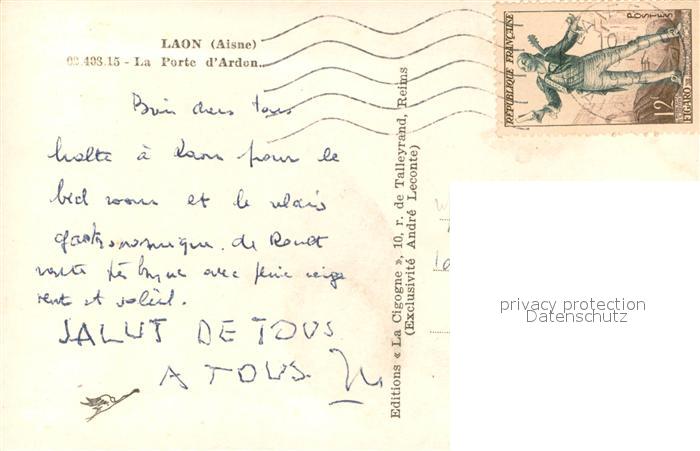 LAON (Aisne)
02.408.15 - La Porte d'Ardon..
Bien chers tous
halte à Laon pour le
bed room et le relais
gastronomique. de
route très avec pluie neige
vent et soleil.
SALUT DE TOUS
A TOUS
Editions « La Cigogne », 10, r. de Talleyrand, Reims
(Exclusivité André Leconte)
RÉPUBLIQUE FRANÇAISE
POSTES
12F
FIGARO
privacy protection
Datenschutz